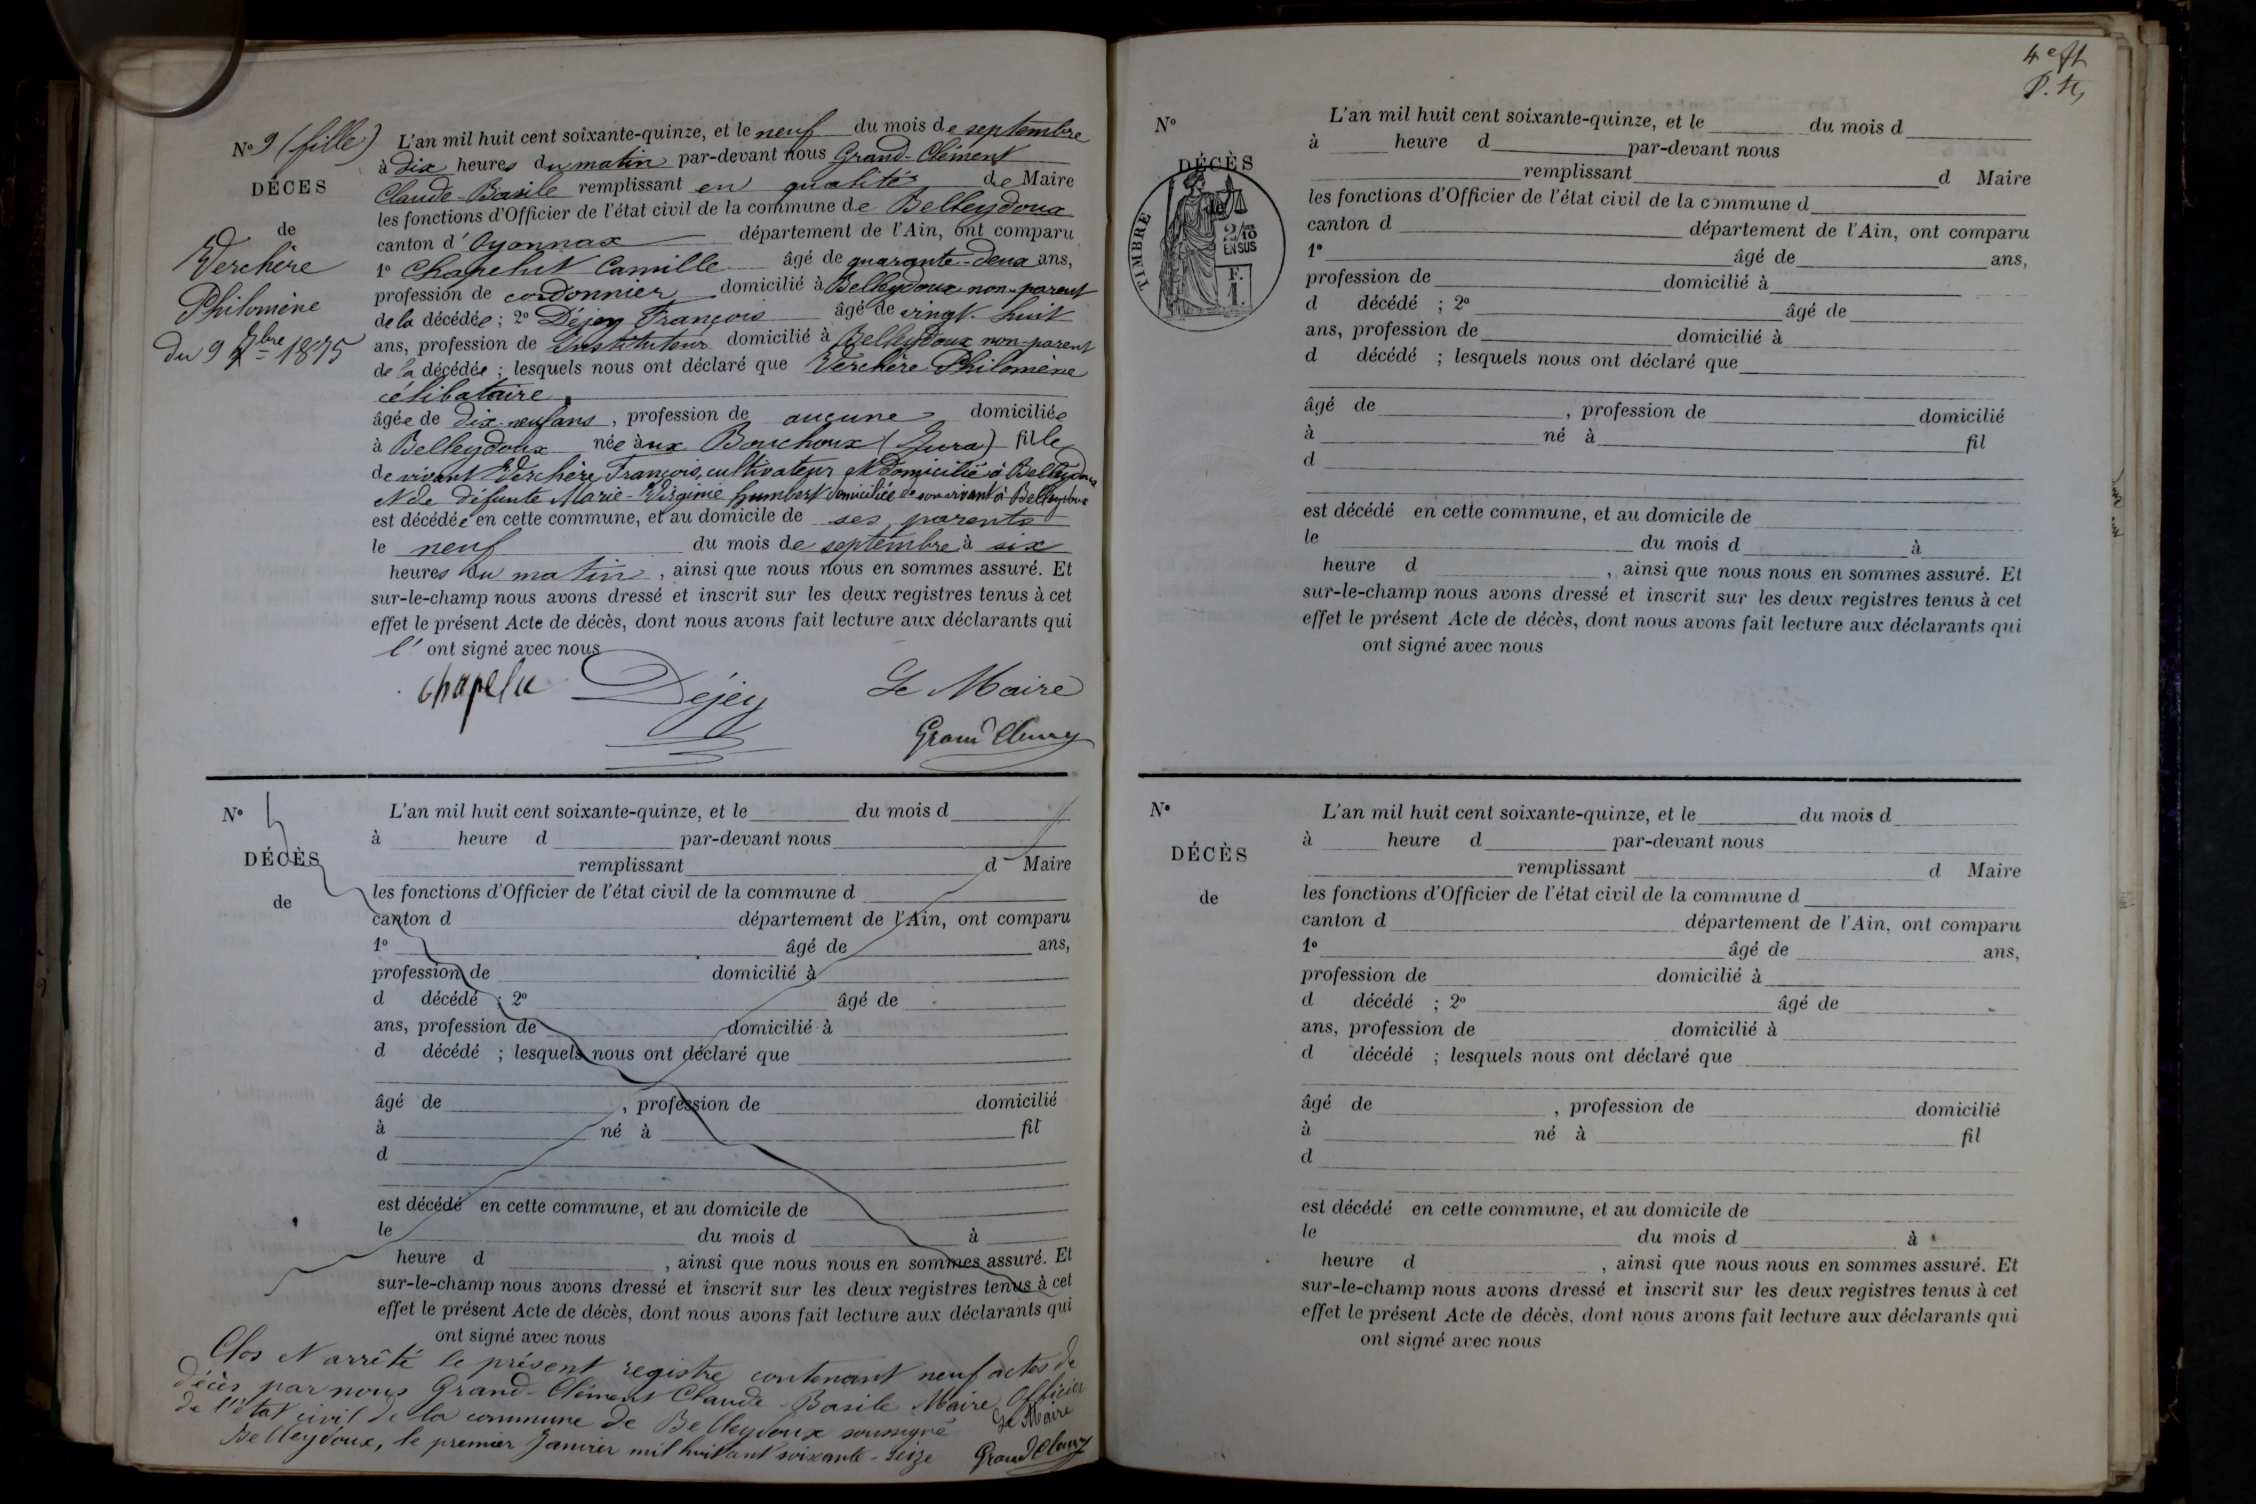 N° 9 (fille)
DÉCES
de
Verchère
Philomène
du 9 7bre 1875
L'an mil huit cent soixante-quinze, et le neuf du mois de septembre
à dix heures du matin par-devant nous Grand-Clément
Claude-Basile remplissant en qualité de Maire
les fonctions d'Officier de l'état civil de la commune de Belleydoux
canton d'Oyonnax département de l'Ain, ont comparu
1° Chapelut Camille âgé de quarante-deux ans,
profession de cordonnier domicilié à Belleydoux non-parent
de la décédée ; 2° Déjey François âgé de vingt-huit
ans, profession de Instituteur domicilié à Belleydoux non-parent
de la décédée ; lesquels nous ont déclaré que Verchère Philomène
célibataire
âgée de dix-neuf ans, profession de aucune domiciliée
à Belleydoux née aux Bouchoux (Jura) fille
de vivant Verchère François, cultivateur et domicilié à Belleydoux
et de défunte Marie-Virginie Humbert domiciliée de son vivant à Belleydoux
est décédée en cette commune, et au domicile de ses parents
le neuf du mois de septembre à six
heures du matin, ainsi que nous nous en sommes assuré. Et
sur-le-champ nous avons dressé et inscrit sur les deux registres tenus à cet
effet le présent Acte de décès, dont nous avons fait lecture aux déclarants qui
l'ont signé avec nous
Chapelu Déjey Le Maire
Grand Clément
N°
DÉCÈS
de
L'an mil huit cent soixante-quinze, et le du mois d
à heure d par-devant nous
remplissant d Maire
les fonctions d'Officier de l'état civil de la commune d
canton d département de l'Ain, ont comparu
1° âgé de ans,
profession de domicilié à
d décédé ; 2° âgé de
ans, profession de domicilié à
d décédé ; lesquels nous ont déclaré que
âgé de , profession de domicilié
à né à fil
d
est décédé en cette commune, et au domicile de
le du mois d à
heure d , ainsi que nous nous en sommes assuré. Et
sur-le-champ nous avons dressé et inscrit sur les deux registres tenus à cet
effet le présent Acte de décès, dont nous avons fait lecture aux déclarants qui
ont signé avec nous
Clos et arrêté le présent registre contenant neuf actes de
décès par nous Grand-Clément Claude-Basile Maire Officier
de l'état civil de la commune de Belleydoux soussigné
Belleydoux, le premier Janvier mil huit cent soixante-seize
Le Maire
Grand Clément
4e ft
N°
DÉCÈS
de
TIMBRE
2/10
EN SUS
L'an mil huit cent soixante-quinze, et le du mois d
à heure d par-devant nous
remplissant d Maire
les fonctions d'Officier de l'état civil de la commune d
canton d département de l'Ain, ont comparu
1° âgé de ans,
profession de domicilié à
d décédé ; 2° âgé de
ans, profession de domicilié à
d décédé ; lesquels nous ont déclaré que
âgé de , profession de domicilié
à né à fil
d
est décédé en cette commune, et au domicile de
le du mois d à
heure d , ainsi que nous nous en sommes assuré. Et
sur-le-champ nous avons dressé et inscrit sur les deux registres tenus à cet
effet le présent Acte de décès, dont nous avons fait lecture aux déclarants qui
ont signé avec nous
N°
DÉCÈS
de
L'an mil huit cent soixante-quinze, et le du mois d
à heure d par-devant nous
remplissant d Maire
les fonctions d'Officier de l'état civil de la commune d
canton d département de l'Ain, ont comparu
1° âgé de ans,
profession de domicilié à
d décédé ; 2° âgé de
ans, profession de domicilié à
d décédé ; lesquels nous ont déclaré que
âgé de , profession de domicilié
à né à fil
d
est décédé en cette commune, et au domicile de
le du mois d à
heure d , ainsi que nous nous en sommes assuré. Et
sur-le-champ nous avons dressé et inscrit sur les deux registres tenus à cet
effet le présent Acte de décès, dont nous avons fait lecture aux déclarants qui
ont signé avec nous